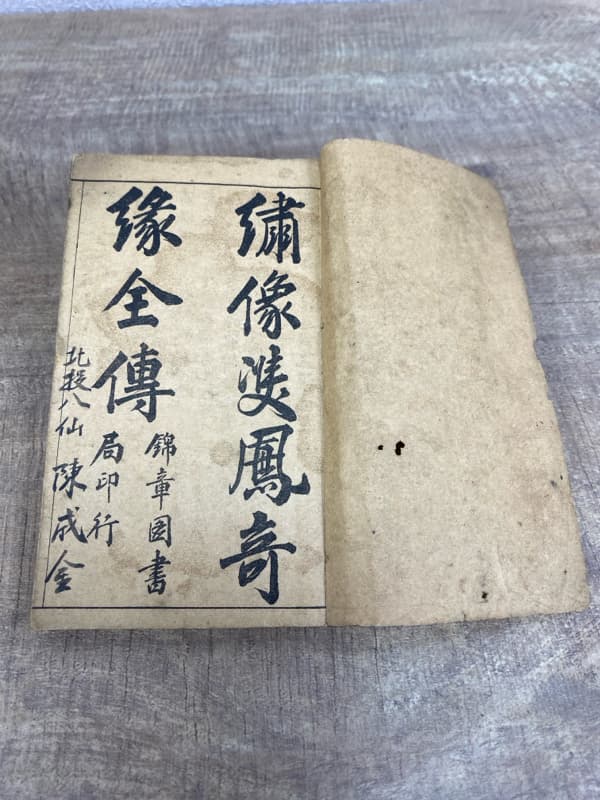 繡像雙鳳奇
緣全傳
錦章圖書
局印行
北投八仙 陳成金